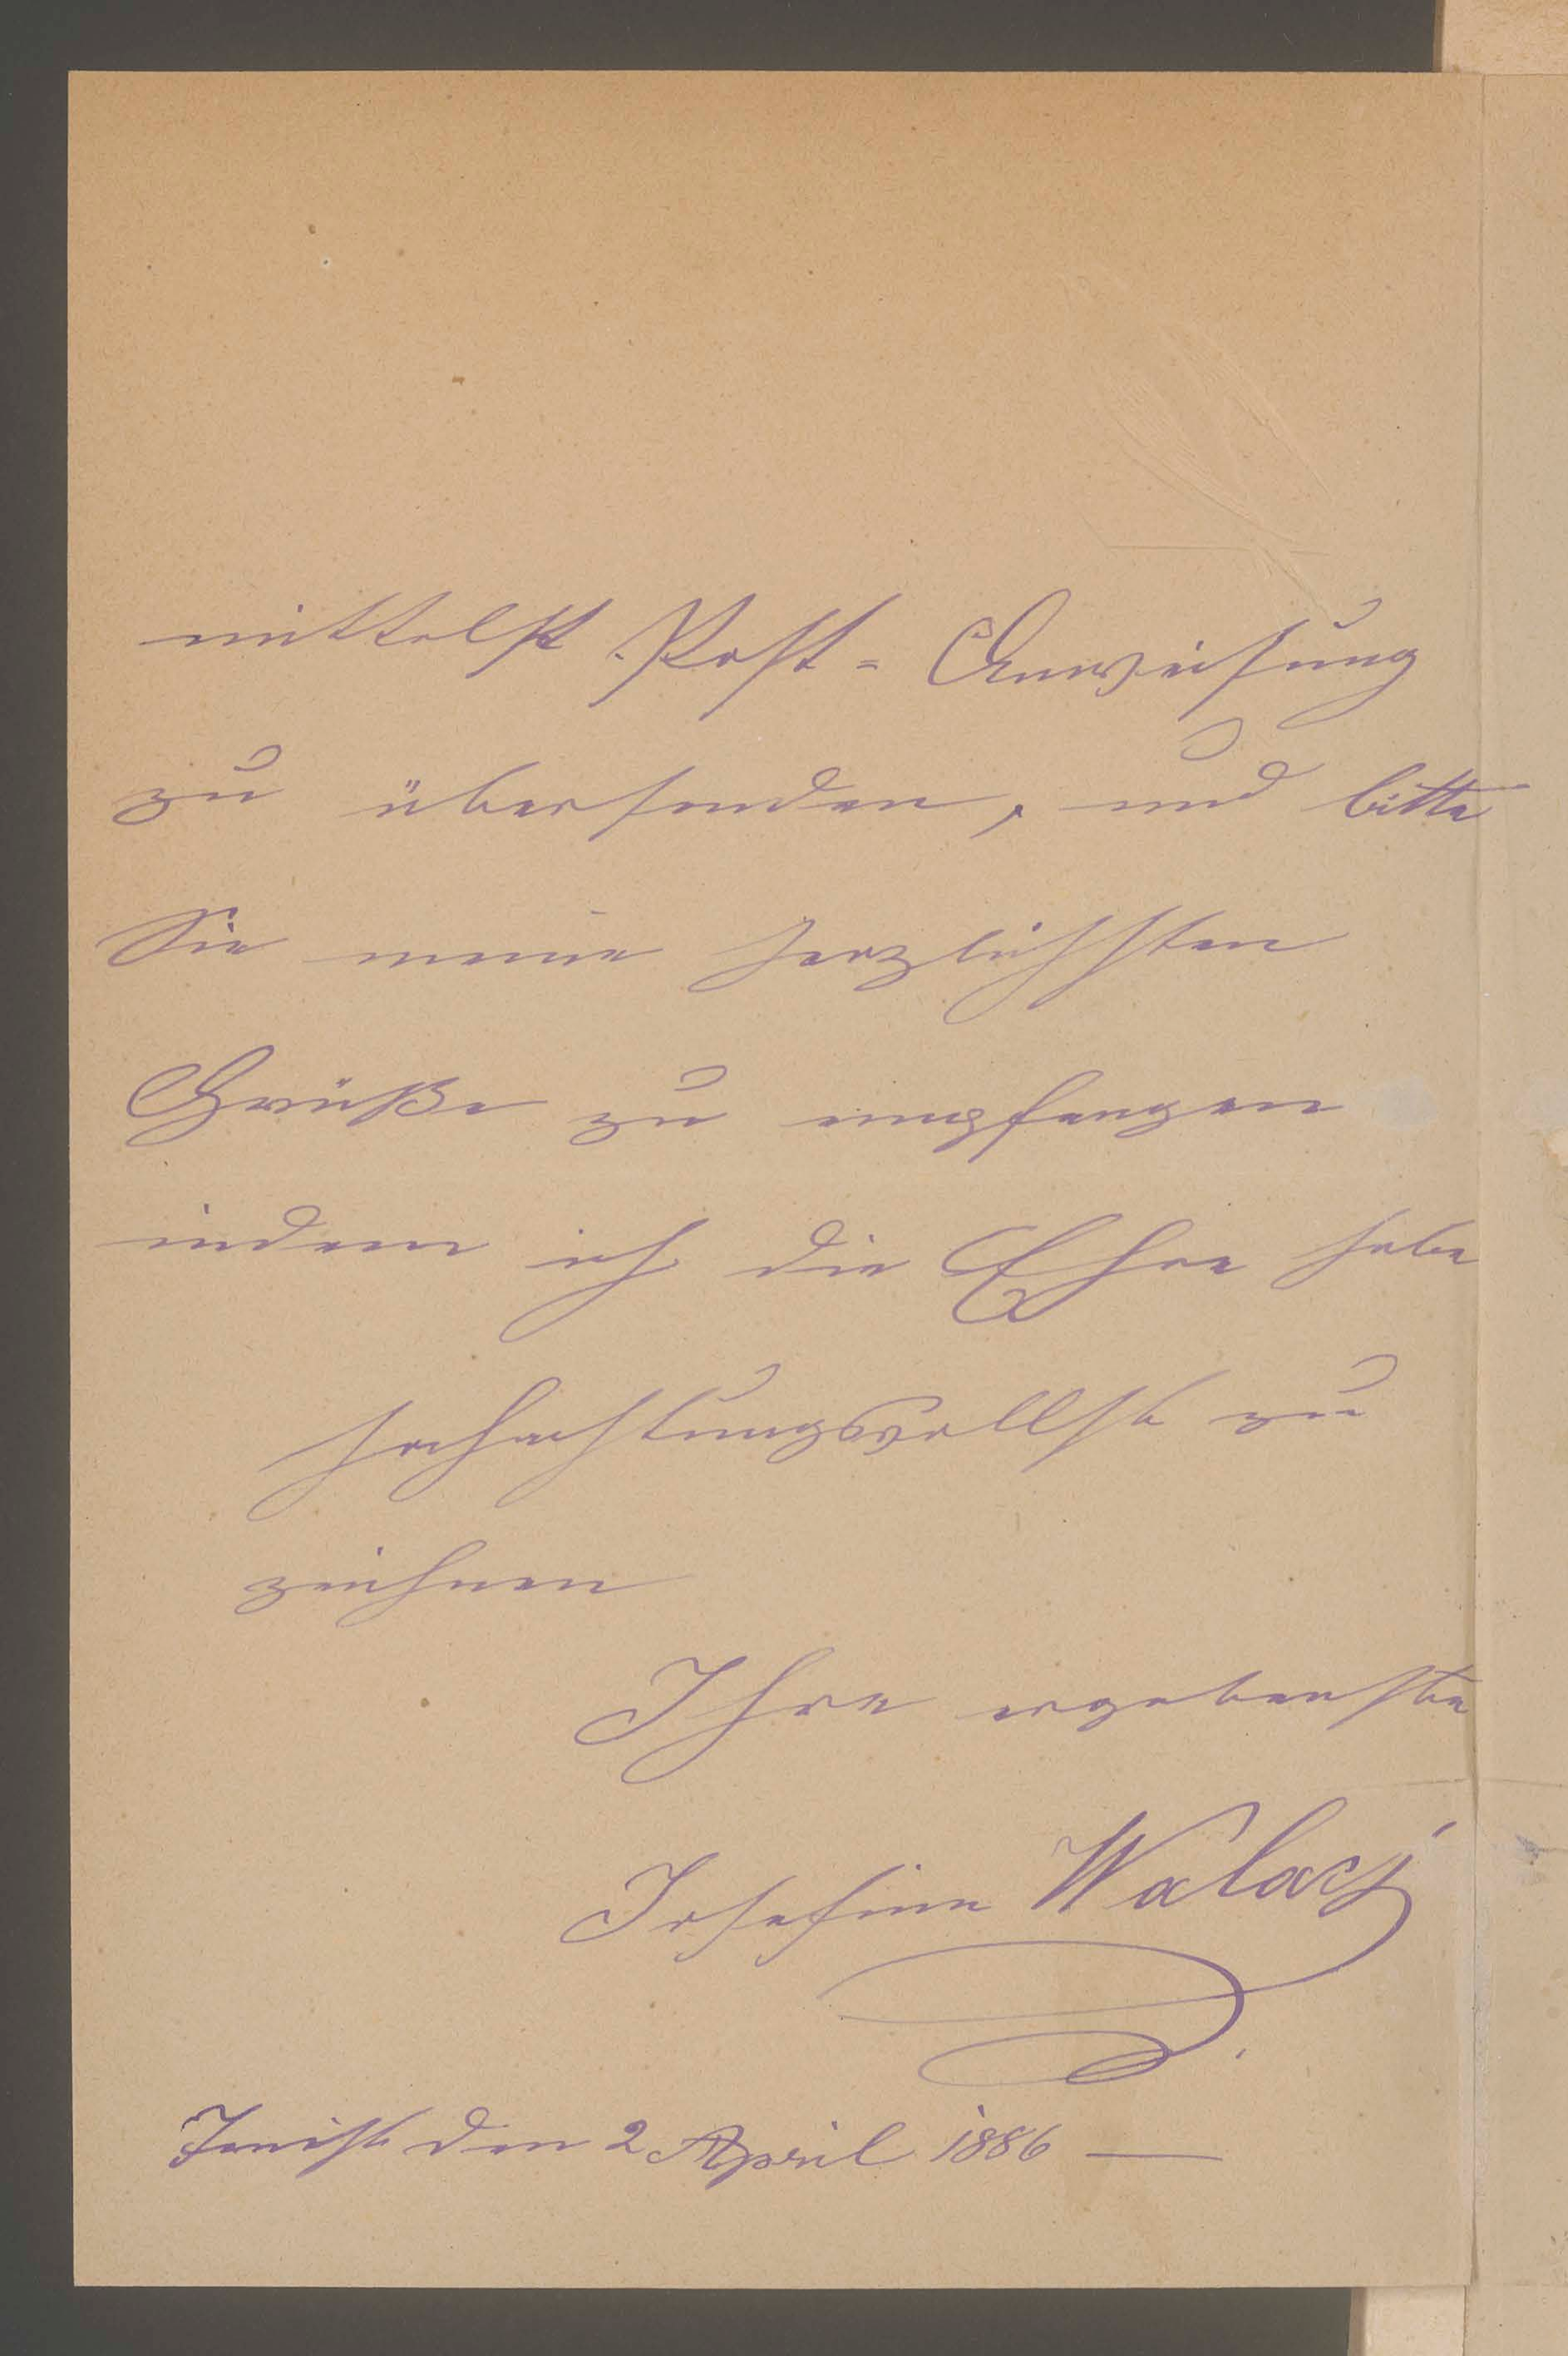 mittelst Post-Anweisung
zu übersenden, und bitte
Sie meine herzlichsten
Grüße zu empfangen
indem ich die Ehre habe
hochachtungsvollst zu
zeichnen
Ihre ergebenste
Josefine Walacz
den 2 April 1886 —